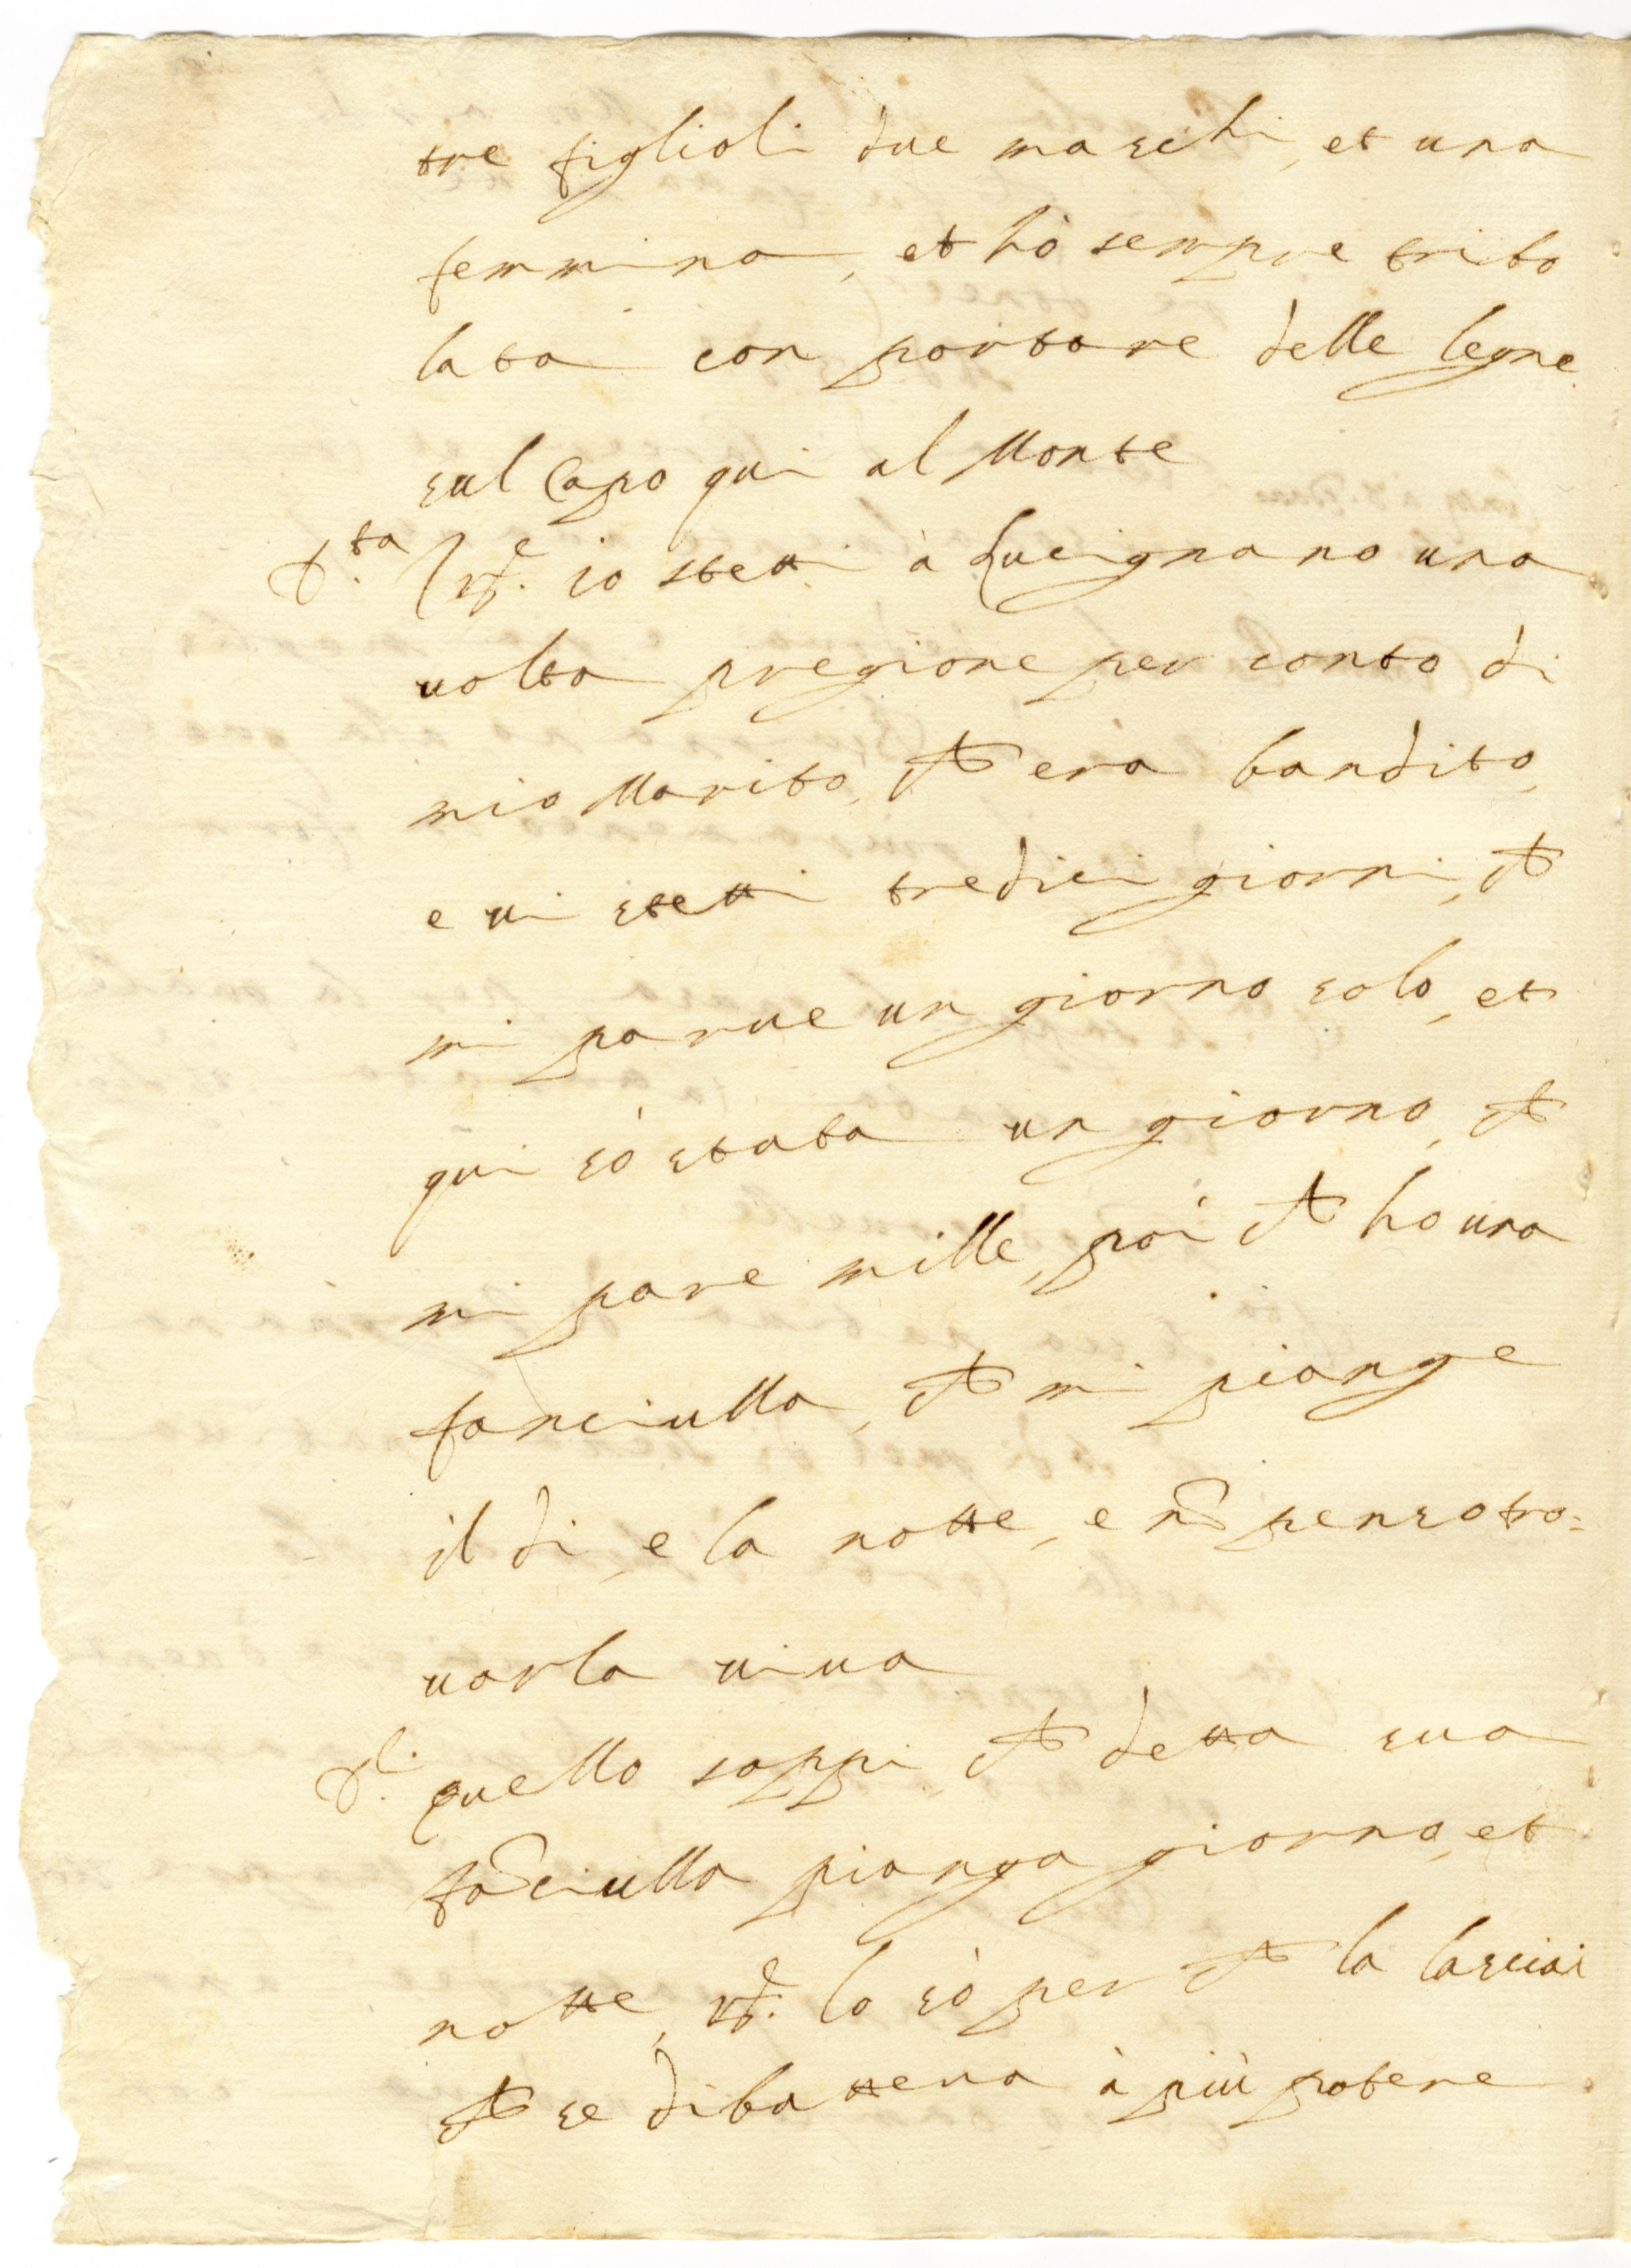 tre figlioli due maschi, et una
femmina, et hò sempre tribo
lata con portare delle legne
sul Capo qui al Monte
D.ta R.e io stetti à Lucignano una
uolta pregione per conto di
mio Marito, ch era bandito,
e ui stetti tredici giorni, ch
mi parue un giorno solo, et
qui sò stata un giorno, ch
mi pare mille, poi ch ho una
fanciulla, ch mi piange
il di, e la notte, e nõ penso tro=
uarla uiua
D.i quello sappi, ch detta sua
fãciulla pianga giorno, et
notte, R.e lo sò per ch la lasciai
ch se dibatteua à più potere